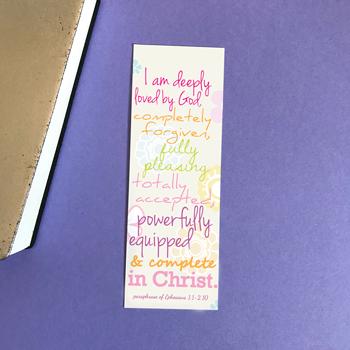 I am deeply
loved by God,
completely
forgiven,
fully
pleasing,
totally
accepted,
powerfully
equipped
& complete
in Christ.
paraphrase of Ephesians 1:1-2:10